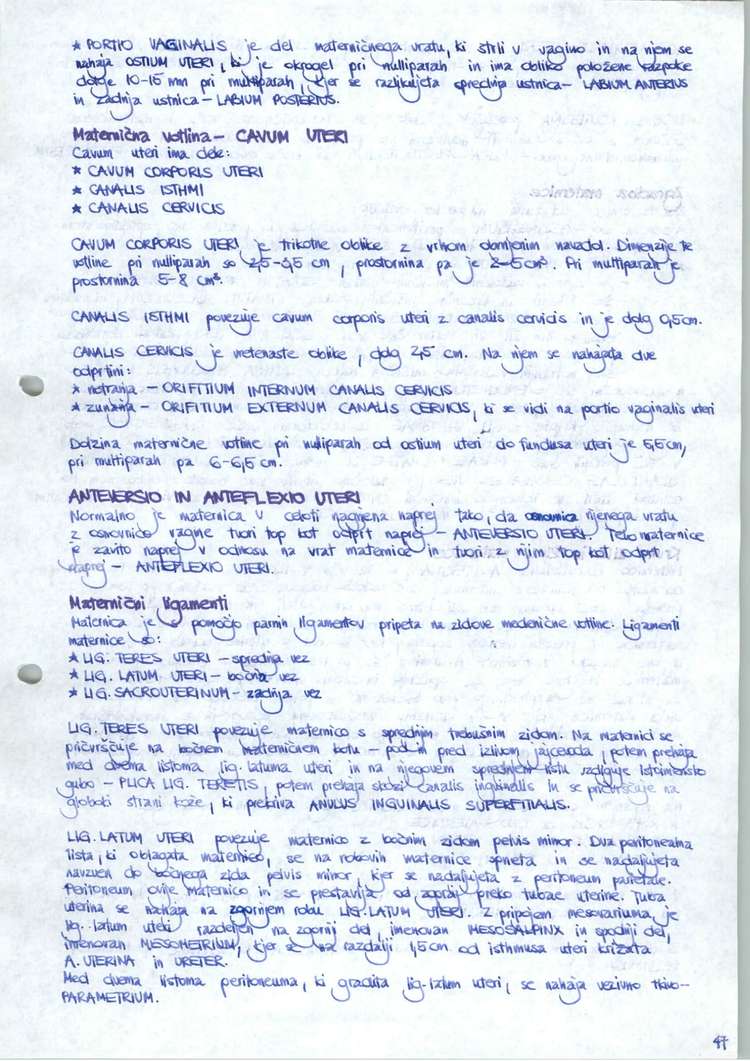 * PORTIO VAGINALIS je del materničnega vratu, ki štrli v vagino in na njem se
nahaja OSTIUM UTERI, ki je okrogel pri nulliparah in ima obliko položene razpoke
dolge 10-15 mm pri multiparah, kjer se razlikujeta sprednja ustnica - LABIUM ANTERIUS
in zadnja ustnica - LABIUM POSTERIUS.
Maternična votlina - CAVUM UTERI
Cavum uteri ima dele:
* CAVUM CORPORIS UTERI
* CANALIS ISTHMI
* CANALIS CERVICIS
CAVUM CORPORIS UTERI je trikotne oblike z vrhom obrnjenim navzdol. Dimenzije te
votline pri nulliparah so 2,5-3,5 cm, prostornina pa je 2-5 cm³. Pri multiparah je
prostornina 5-8 cm³.
CANALIS ISTHMI povezuje cavum corporis uteri z canalis cervicis in je dolg 0,5 cm.
CANALIS CERVICIS je vretenaste oblike, dolg 2,5 cm. Na njem se nahajata dve
odprtini:
* notranja - ORIFITIUM INTERNUM CANALIS CERVICIS
* zunanja - ORIFITIUM EXTERNUM CANALIS CERVICIS, ki se vidi na portio vaginalis uteri
Dolžina maternične votline pri nulliparah od ostium uteri do fundusa uteri je 5,5 cm,
pri multiparah pa 6-6,5 cm.
ANTEVERSIO IN ANTEFLEXIO UTERI
Normalno je maternica v celoti nagnjena naprej tako, da osnovnica njenega vratu
z osnovnico vagine tvori top kot odprt naprej - ANTEVERSIO UTERI. Telo maternice
je zavito naprej v odnosu na vrat maternice in tvori z njim top kot odprt
naprej - ANTEFLEXIO UTERI.
Maternični ligamenti
Maternica je s pomočjo parnih ligamentov pripeta na zidove medenične votline. Ligamenti
maternice so:
* LIG. TERES UTERI - sprednja vez
* LIG. LATUM UTERI - bočna vez
* LIG. SACROUTERINUM - zadnja vez
LIG. TERES UTERI povezuje maternico s sprednjim trebušnim zidom. Na maternici se
pričvrščuje na bočnem materničnem kotu - pod in pred izlivom jajcevoda, potem prehaja
med dvema listoma lig. latuma uteri in na njegovem sprednjem listu zdiguje istoimensko
gubo - PLICA LIG. TERETIS, potem prehaja skozi canalis inguinalis in se pričvrščuje na
globoki strani kože, ki prekriva ANULUS INGUINALIS SUPERFITIALIS.
LIG. LATUM UTERI povezuje maternico z bočnim zidom pelvis minor. Dva peritonealna
lista, ki oblagata maternico, se na robovih maternice spneta in se nadaljujeta
navzven do bočnega zida pelvis minor, kjer se nadaljujeta z peritoneum parietale.
Peritoneum ovije maternico in se prestavlja od zgoraj preko tubae uterine. Tuba
uterina se nahaja na zgornjem robu LIG. LATUM UTERI. Z pripojem mesovariuma, je
lig. latum uteri razdeljen na zgornji del, imenovan MESOSALPINX in spodnji del,
imenovan MESOMETRIUM, kjer se na razdalji 1,5 cm od isthmusa uteri križata
A. UTERINA in URETER.
Med dvema listoma peritoneuma, ki gradita lig. latum uteri, se nahaja vezivno tkivo -
PARAMETRIUM.
47